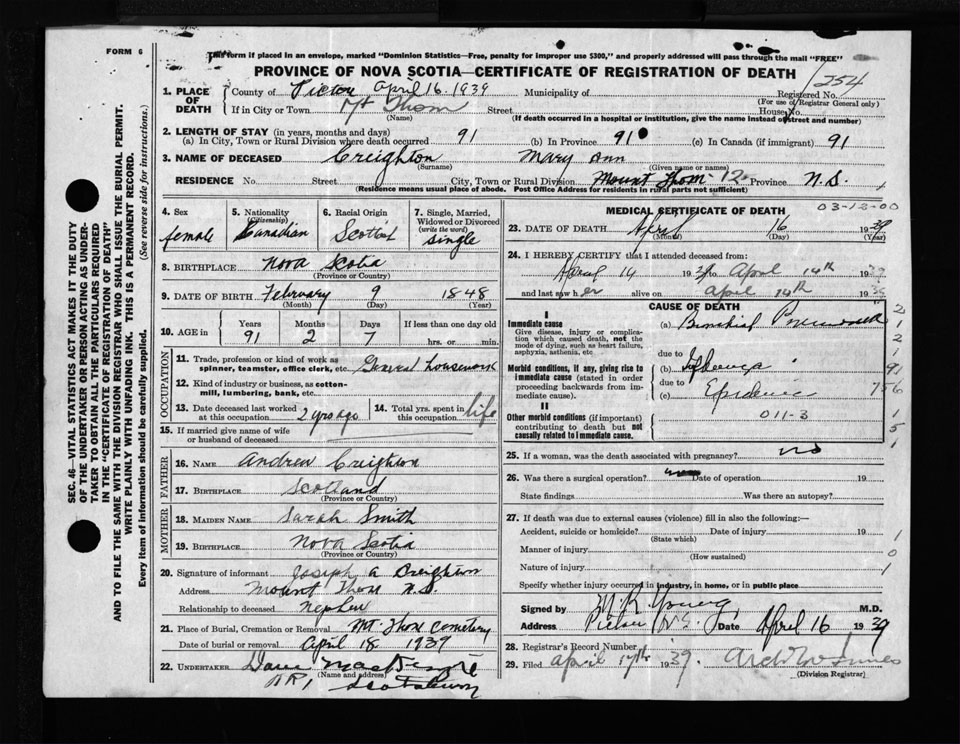 FORM 6
This form if placed in an envelope, marked "Dominion Statistics—Free, penalty for improper use $300," and properly addressed will pass through the mail "FREE"
PROVINCE OF NOVA SCOTIA—CERTIFICATE OF REGISTRATION OF DEATH
254
1. PLACE OF DEATH County of Pictou April 16. 1939 Municipality of Registered No.
(For use of Registrar General only)
If in City or Town Mt Thom Street House No.
(Name) (If death occurred in a hospital or institution, give the name instead of street and number)
2. LENGTH OF STAY (in years, months and days)
(a) In City, Town or Rural Division where death occurred 91 (b) In Province 91 (c) In Canada (if immigrant) 91
3. NAME OF DECEASED Creighton Mary Ann
(Surname) (Given name or names)
RESIDENCE No. Street City, Town or Rural Division Mount Thom 12 Province N.S.
(Residence means usual place of abode. Post Office Address for residents in rural parts not sufficient)
4. Sex female
5. Nationality (Citizenship) Canadian
6. Racial Origin Scotish
7. Single, Married, Widowed or Divorced (write the word) single
8. BIRTHPLACE Nova Scotia
(Province or Country)
9. DATE OF BIRTH February 9 1848
(Month) (Day) (Year)
10. AGE in Years Months Days If less than one day old
91 2 7 hrs. or min.
OCCUPATION
11. Trade, profession or kind of work as spinner, teamster, office clerk, etc. General housework
12. Kind of industry or business, as cotton-mill, lumbering, bank, etc.
13. Date deceased last worked at this occupation 2 yrs ago
14. Total yrs. spent in this occupation life
15. If married give name of wife or husband of deceased
FATHER
16. NAME Andrew Creighton
17. BIRTHPLACE Scotland
(Province or Country)
MOTHER
18. MAIDEN NAME Sarah Smith
19. BIRTHPLACE Nova Scotia
(Province or Country)
20. Signature of informant Joseph A Creighton
Address Mount Thom N.S.
Relationship to deceased nephew
21. Place of Burial, Cremation or Removal Mt. Thom Cemetery
Date of burial or removal April 18 1939
22. UNDERTAKER
(Name and address)
RR 1
MEDICAL CERTIFICATE OF DEATH 03-12-00
23. DATE OF DEATH April 16 1939
(Month) (Day) (Year)
24. I HEREBY CERTIFY that I attended deceased from:
April 14 1939 to April 14th 1939
and last saw her alive on April 14th 1939
CAUSE OF DEATH
I
Immediate cause (a) Bronchial Pneumonia
Give disease, injury or complication which caused death, not the mode of dying, such as heart failure, asphyxia, asthenia, etc
due to
Morbid conditions, if any, giving rise to immediate cause (stated in order proceeding backwards from immediate cause). (b) Influenza
due to
(c) Epidemic
II
011-3
Other morbid conditions (if important) contributing to death but not causally related to immediate cause.
25. If a woman, was the death associated with pregnancy? no
26. Was there a surgical operation? Date of operation 19
State findings Was there an autopsy?
27. If death was due to external causes (violence) fill in also the following:—
Accident, suicide or homicide? Date of injury 19
(State which)
Manner of injury
(How sustained)
Nature of injury
Specify whether injury occurred in industry, in home, or in public place
Signed by M.R. Young M.D.
Address Pictou N.S. Date April 16 1939
28. Registrar's Record Number
29. Filed April 17th 1939
(Division Registrar)
SEC. 46—VITAL STATISTICS ACT MAKES IT THE DUTY
OF THE UNDERTAKER OR PERSON ACTING AS UNDER-
TAKER TO OBTAIN ALL THE PARTICULARS REQUIRED
IN THE "CERTIFICATE OF REGISTRATION OF DEATH"
AND TO FILE THE SAME WITH THE DIVISION REGISTRAR WHO SHALL ISSUE THE BURIAL PERMIT.
WRITE PLAINLY WITH UNFADING INK. THIS IS A PERMANENT RECORD.
Every item of information should be carefully supplied. (See reverse side for instructions.)